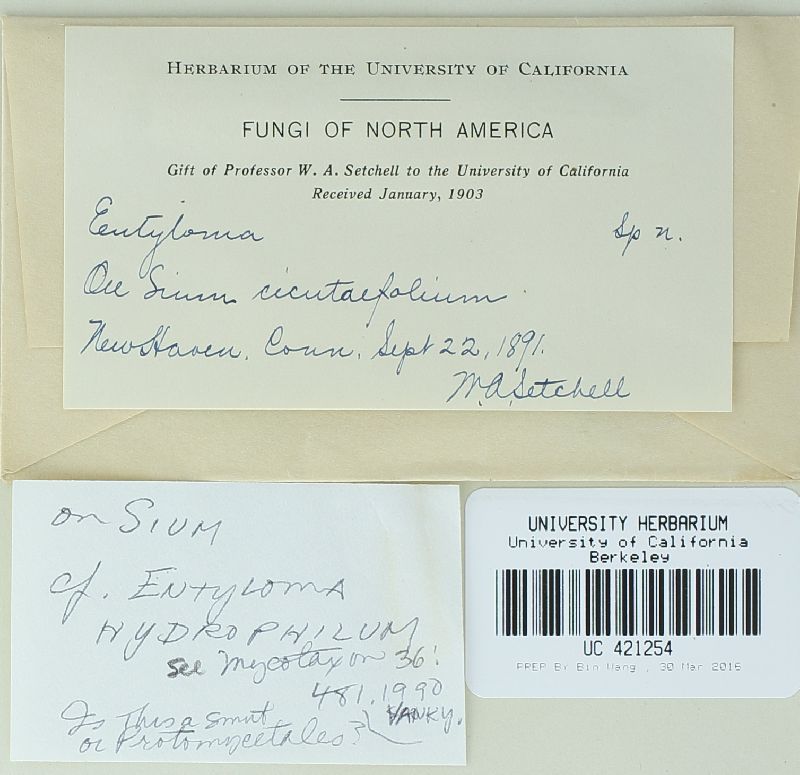 HERBARIUM OF THE UNIVERSITY OF CALIFORNIA
FUNGI OF NORTH AMERICA
Gift of Professor W. A. Setchell to the University of California
Received January, 1903
Entyloma Sp n.
On Sium cicutaefolium
New Haven, Conn, Sept 22, 1891.
W.A. Setchell
on SIUM
cf. ENTYLOMA
HYDROPHILUM
see Mycotaxon 36:
481.1990
Is this a smut VANKY.
or Protomycetales?
UNIVERSITY HERBARIUM
University of California
Berkeley
UC 421254
PREP By Bin Wang , 30 Mar 2016